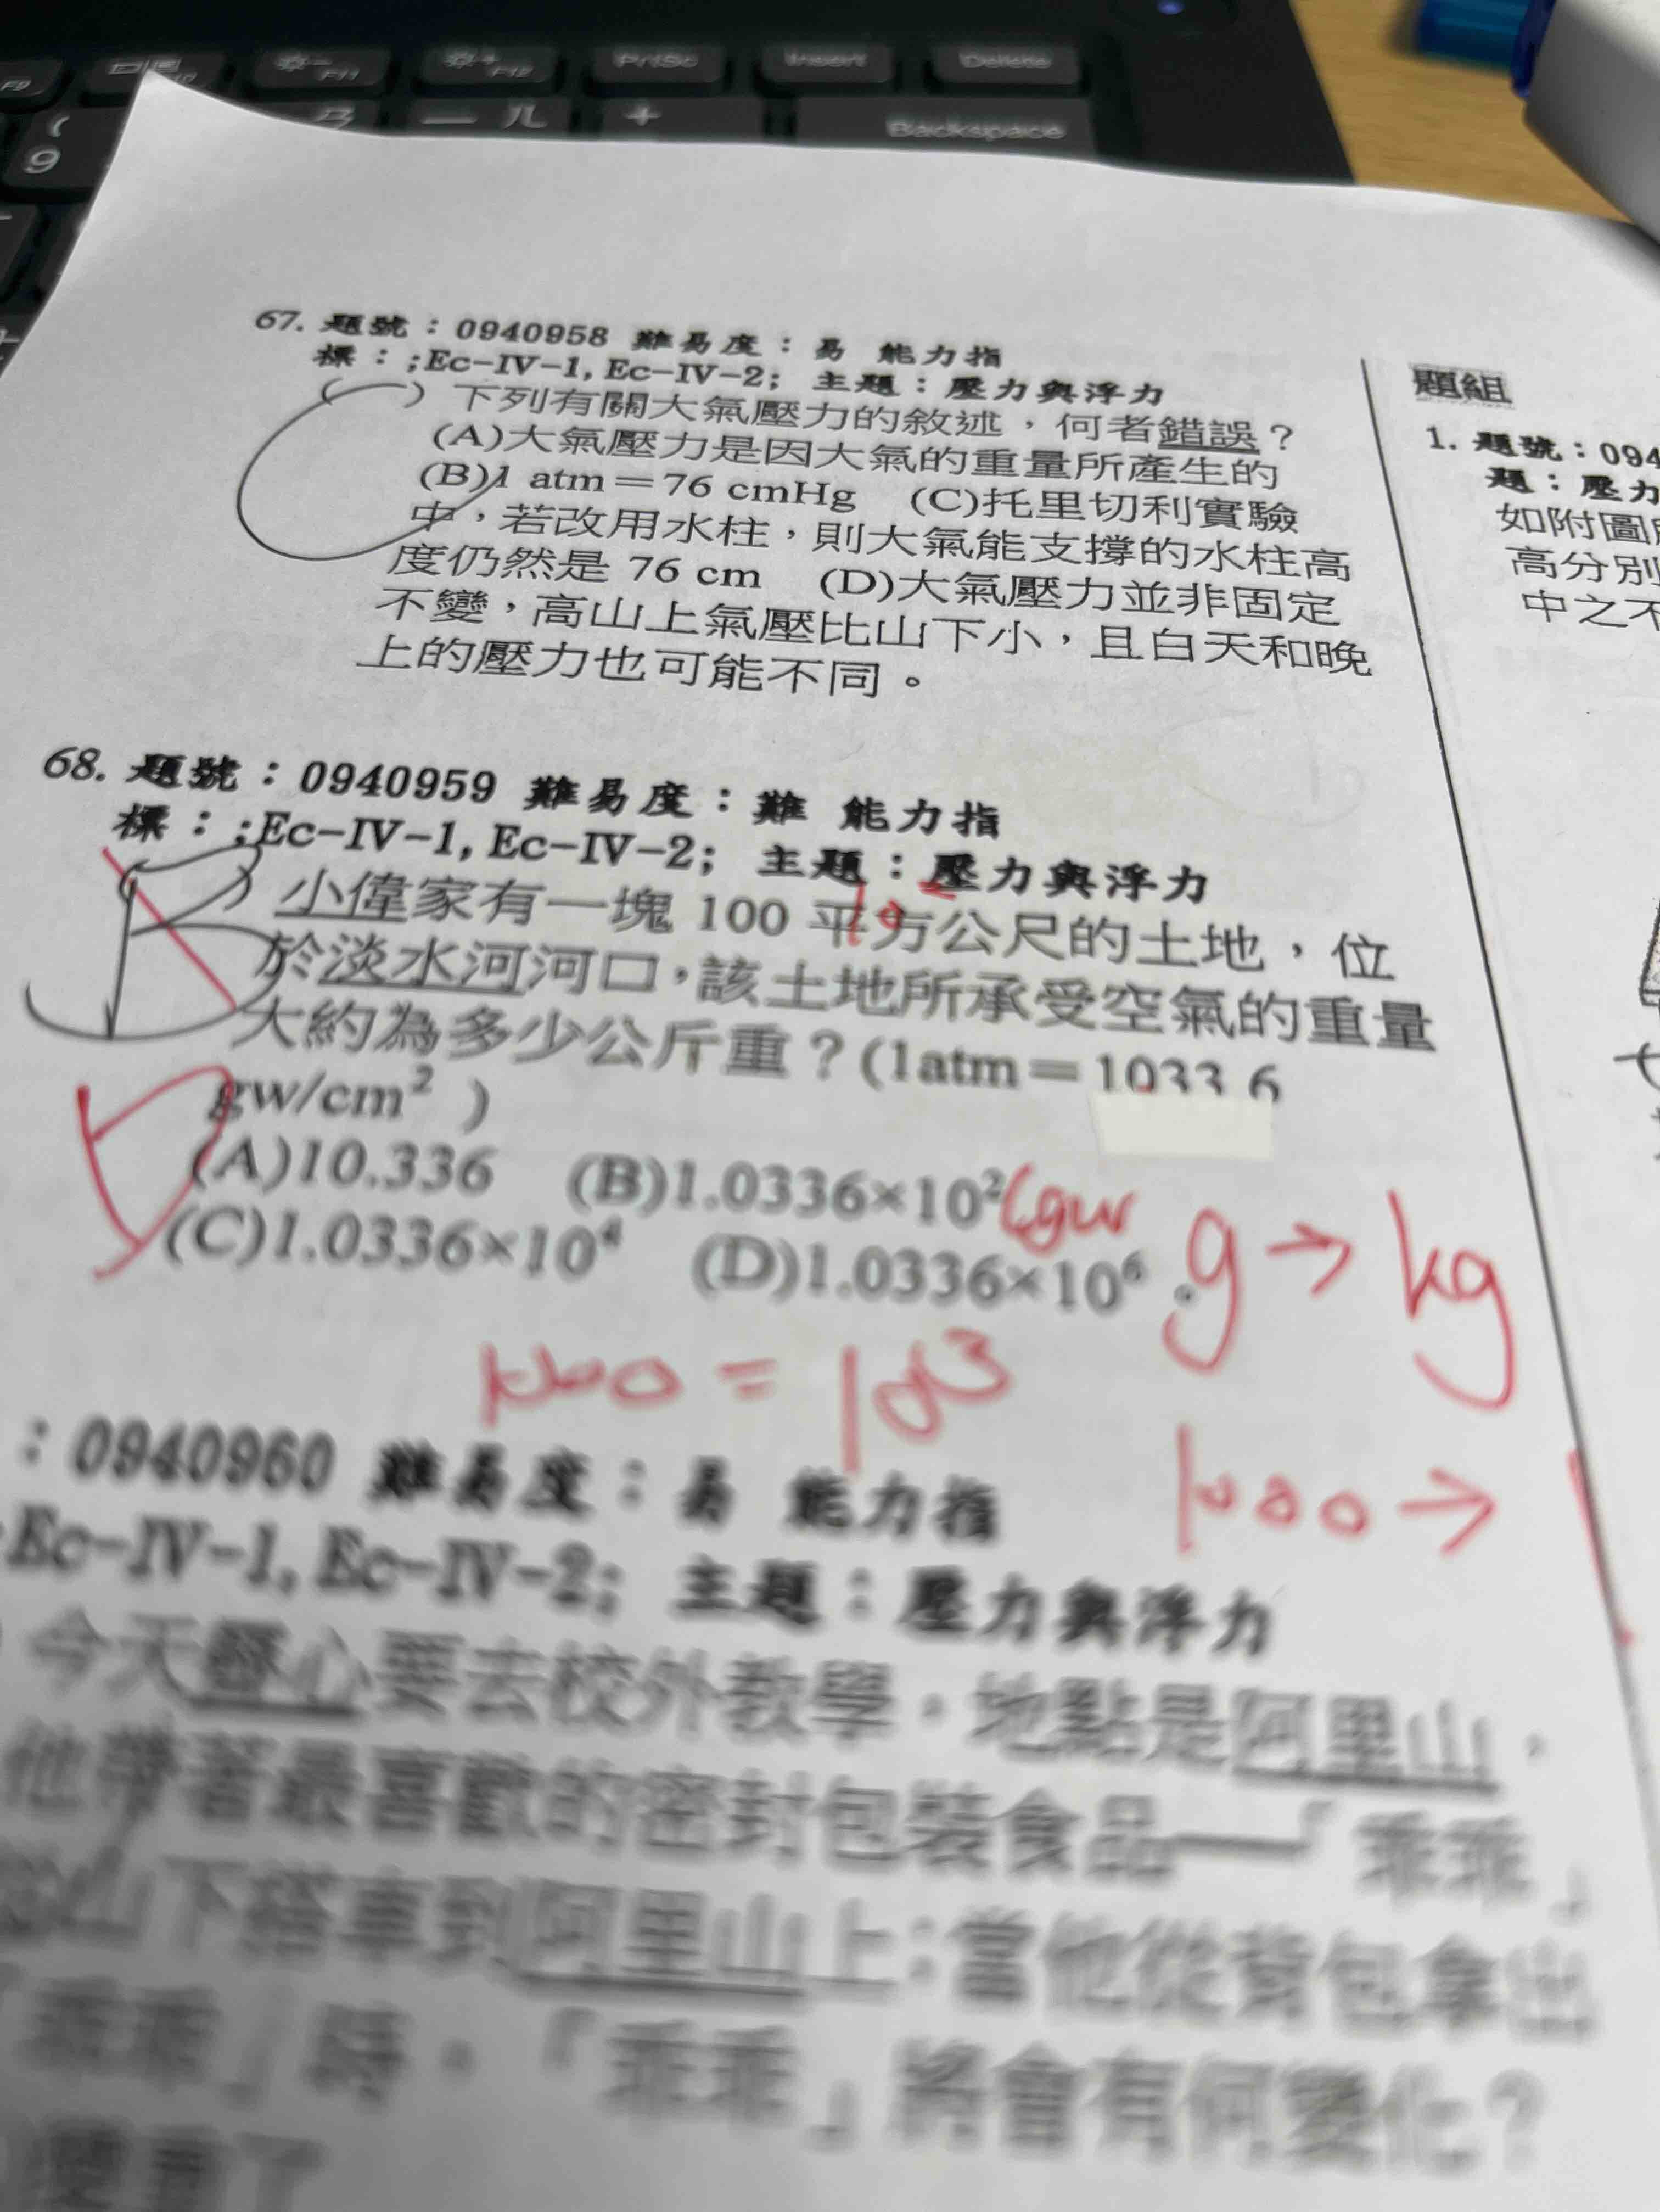 F9
F11
F12
PrtSc
Insert
Delete
(
9
ㄋ
ㄦ
+
Backspace
67. 題號：0940958 難易度：易 能力指
標：;Ec-IV-1, Ec-IV-2; 主題：壓力與浮力
( ) 下列有關大氣壓力的敘述，何者錯誤？
(A)大氣壓力是因大氣的重量所產生的
(B)1 atm＝76 cmHg (C)托里切利實驗
中，若改用水柱，則大氣能支撐的水柱高
度仍然是 76 cm (D)大氣壓力並非固定
不變，高山上氣壓比山下小，且白天和晚
上的壓力也可能不同。
C
68. 題號：0940959 難易度：難 能力指
標：;Ec-IV-1, Ec-IV-2; 主題：壓力與浮力
) 小偉家有一塊 100 平方公尺的土地，位
於淡水河河口，該土地所承受空氣的重量
大約為多少公斤重？(1atm＝1033.6
gw/cm² )
(A)10.336 (B)1.0336×10²
(C)1.0336×10⁴ (D)1.0336×10⁶ 。
B
D
g → kg
1000 = 10³
1000 → 1
：0940960 難易度：易 能力指
;Ec-IV-1, Ec-IV-2; 主題：壓力與浮力
今天豎心要去校外教學，地點是阿里山，
他帶著最喜歡的密封包裝食品—「乖乖」
從山下搭車到阿里山上；當他從背包拿出
「乖乖」時，「乖乖」將會有何變化？
變重了
題組
1. 題號：094
題：壓力
如附圖
高分別
中之不